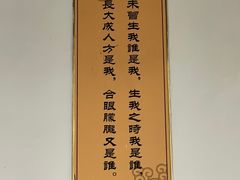 未曾生我誰是我，生我之時我是誰。
長大成人方是我，合眼朦朧又是誰。